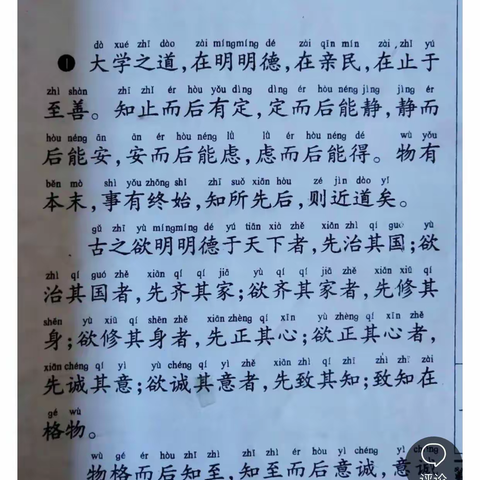 dà xué zhī dào zài míngmíng dé zài qīn mín zài zhǐ yú
❶ 大学之道,在明明德,在亲民,在止于
zhì shàn zhī zhǐ ér hòu yǒu dìng dìng ér hòu néng jìng jìng ér
至善。知止而后有定,定而后能静,静而
hòu néng ān ān ér hòu néng lǜ lǜ ér hòu néng dé wù yǒu
后能安,安而后能虑,虑而后能得。物有
běn mò shì yǒu zhōng shǐ zhī suǒ xiān hòu zé jìn dào yǐ
本末,事有终始,知所先后,则近道矣。
gǔ zhī yù míngmíng dé yú tiān xià zhě xiān zhì qí guó yù
古之欲明明德于天下者,先治其国;欲
zhì qí guó zhě xiān qí qí jiā yù qí qí jiā zhě xiān xiū qí
治其国者,先齐其家;欲齐其家者,先修其
shēn yù xiū qí shēn zhě xiān zhèng qí xīn yù zhèng qí xīn zhě
身;欲修其身者,先正其心;欲正其心者,
xiān chéng qí yì yù chéng qí yì zhě xiān zhì qí zhī zhì zhī zài
先诚其意;欲诚其意者,先致其知;致知在
gé wù
格物。
wù gé ér hòu zhī zhì zhī zhì ér hòu yì chéng yì chéng
物格而后知至,知至而后意诚,意诚
评论